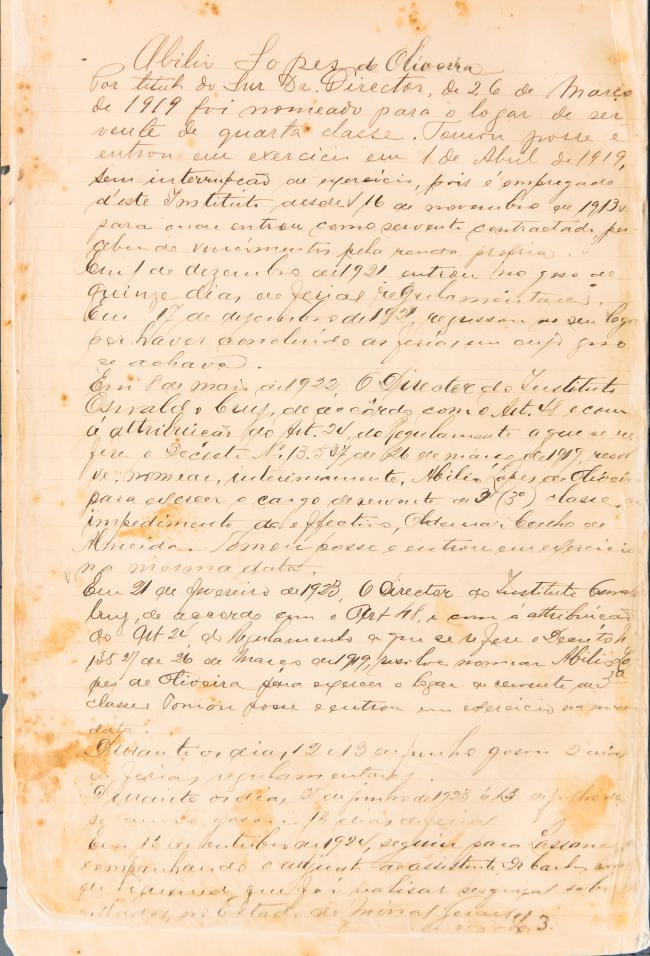 Abilio Lopes de Oliveira
Por titulo do Snr Dr. Director, de 26 de Março
de 1919 foi nomeado para o logar de ser
vente de quarta classe. Tomou posse e
entrou em exercicio em 1 de Abril de 1919,
sem interrupção de exercicio, pois é empregado
d'este Instituto desde 16 de novembro de 1913
para onde entrou como servente contractado, per
cebendo vencimentos pela renda propria.
Em 1 de dezembro de 1921 entrou no goso de
quinze dias de ferias regulamentares.
Em 17 de dezembro de 1921, regressou ao seu logar
por haver concluido as ferias em cujo goso
se achava.
Em 8 de maio de 1922, O Director do Instituto
Oswaldo Cruz, de accôrdo com o Art. 48 e com
á attribuicão do Art. 24, do Regulamento a que se re
fere o Decreto Nº 13.527 de 26 de março de 1919, resol
ve nomear, interinamente, Abilio Lopes de Oliveira
para exercer o cargo de servente de 3ª (3ª) classe,
impedimento do effectivo, Ademar Coelho de
Almeida. Tomou posse e entrou em exercicio
na mesma data.
Em 21 de fevereiro de 1923, O Director do Instituto Oswaldo
Cruz, de accordo com o Art 48, e com á attribuicão
do Art 24 do Regulamento a que se refere o Decreto n
13527 de 26 de Março de 1919, resolve nomear Abilio Lo
pes de Oliveira para exercer o logar de servente de 3ª
classe. Tomou posse e entrou em exercicio na mesma
data.
Durante os dias 12 e 13 de Junho gosou 2 dias
de ferias regulamentares.
Durante os dias de junho de 1923 á 13 de julho
gosou 13 dias de ferias
Em de outubro de 1924, seguiu para
companhando o adjunto assistente, Dr
que foi realisar pesquizas sobre
no Estado de Minas Geraes
3.